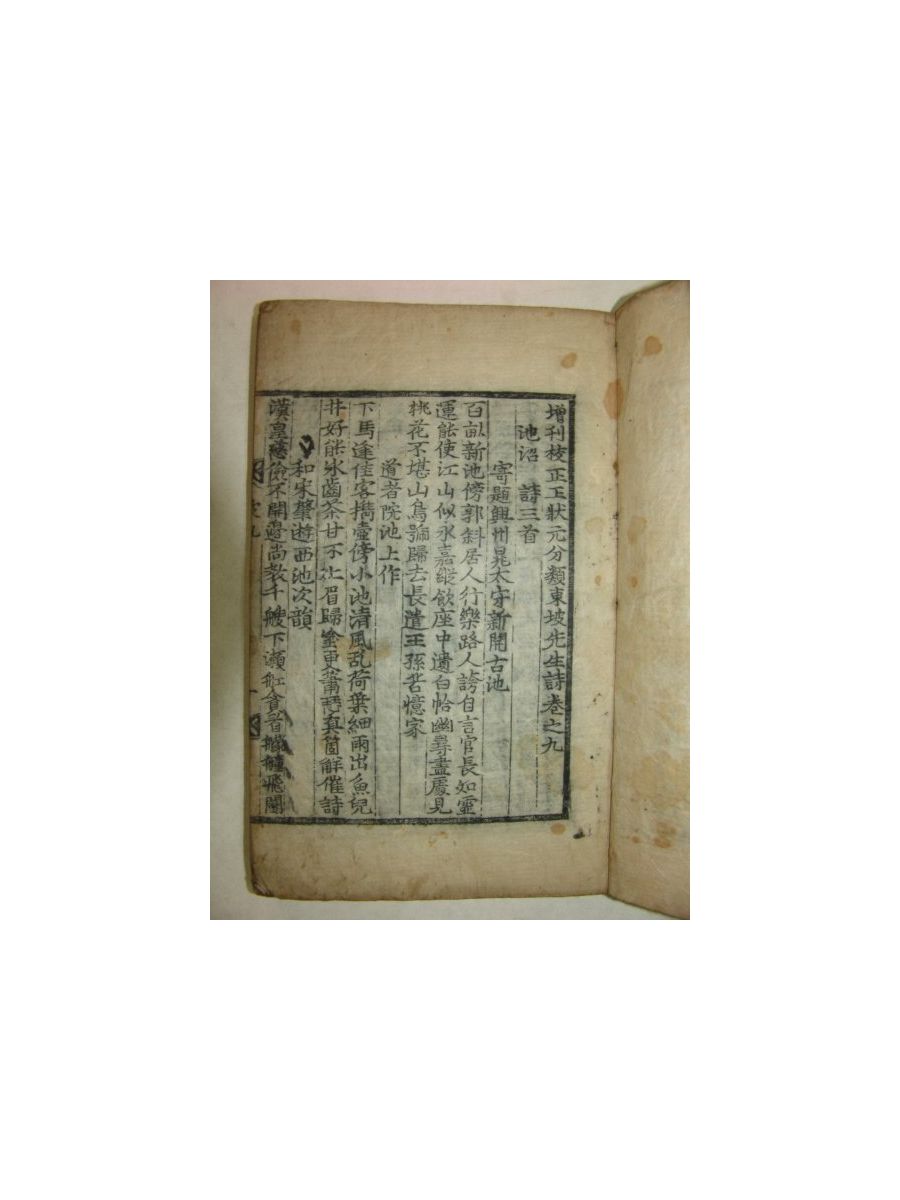 增刊校正王狀元分類東坡先生詩卷之九
池沼 詩三首
寄題興州晁太守新開古池
百畝新池傍郭斜居人行樂路人誇自言官長如靈
運能使江山似永嘉縱飲座中遺白帢幽尋盡處見
桃花不堪山鳥號歸去長遣王孫苦憶家
道者院池上作
下馬逢佳客携壷傍小池清風乱荷葉細雨出魚兒
井好能氷齒茶甘不上眉歸鞍更蕭瑟真箇解催詩
和宋肇遊西池次韻
漢皇慈儉不開邊尚教千艘下瀨舡貪看艨艟飛鬭